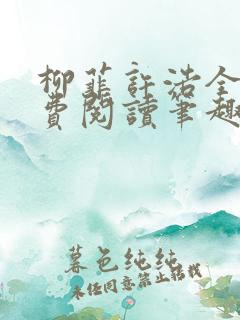 柳菲許浩全
費閱讀筆趣
暮色纯纯
未经同意禁止转载